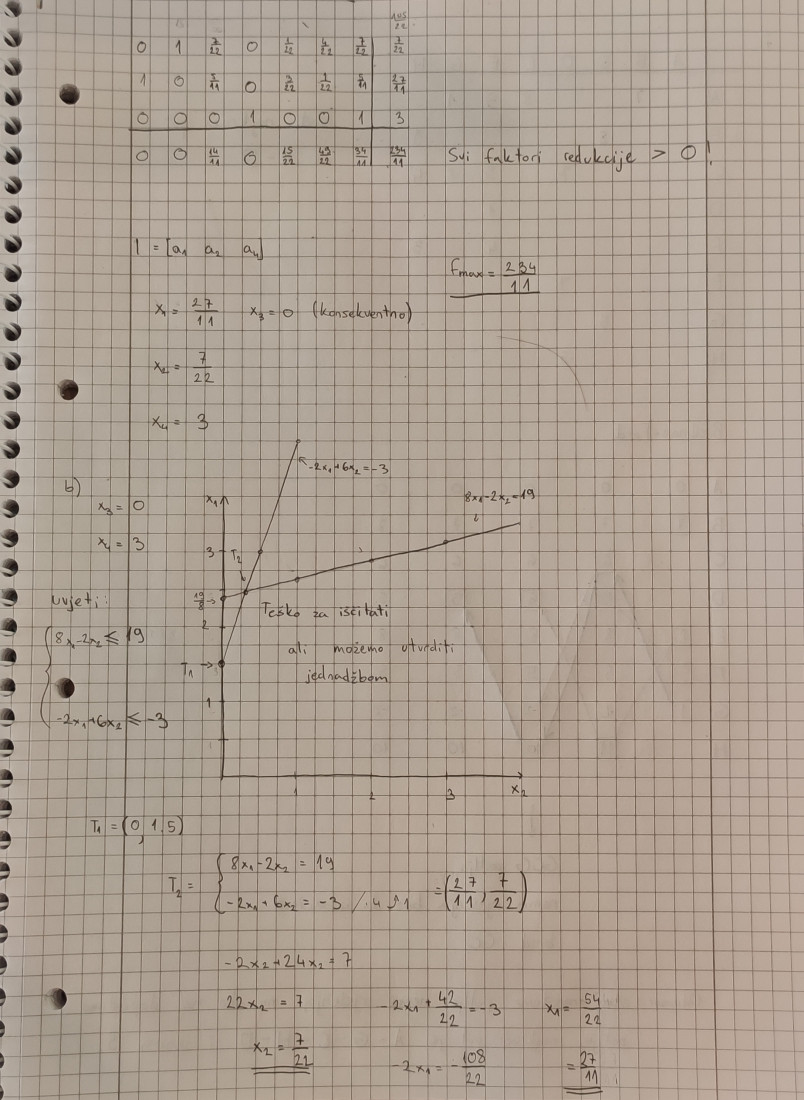 145/22
0 1 7/22 0 1/22 4/22 7/22 7/22
1 0 5/11 0 3/22 1/22 5/11 27/11
0 0 0 1 0 0 1 3
0 0 14/11 0 15/22 49/22 34/11 234/11 Svi faktori redukcije > 0!
I = [a₁ a₂ a₄]
Fmax = 234/11
x₁ = 27/11 x₃ = 0 (konsekventno)
x₂ = 7/22
x₄ = 3
b)
x₃ = 0
x₄ = 3
uvjeti:
8x₁-2x₂ ≤ 19
-2x₁+6x₂ ≤ -3
x₁
-2x₁+6x₂=-3
8x₁-2x₂=19
3
T₂
19/8
2
T₁
1
Teško za iščitati
ali možemo utvrditi
jednadžbom
1 2 3 x₂
T₁ = (0, 1.5)
T₂ = { 8x₁-2x₂ = 19
-2x₁+6x₂ = -3 /·4 ⤴1 = (27/11, 7/22)
-2x₂+24x₂ = 7
22x₂ = 7 -2x₁+42/22=-3 x₁= 54/22
x₂ = 7/22 -2x₁=-108/22 = 27/11